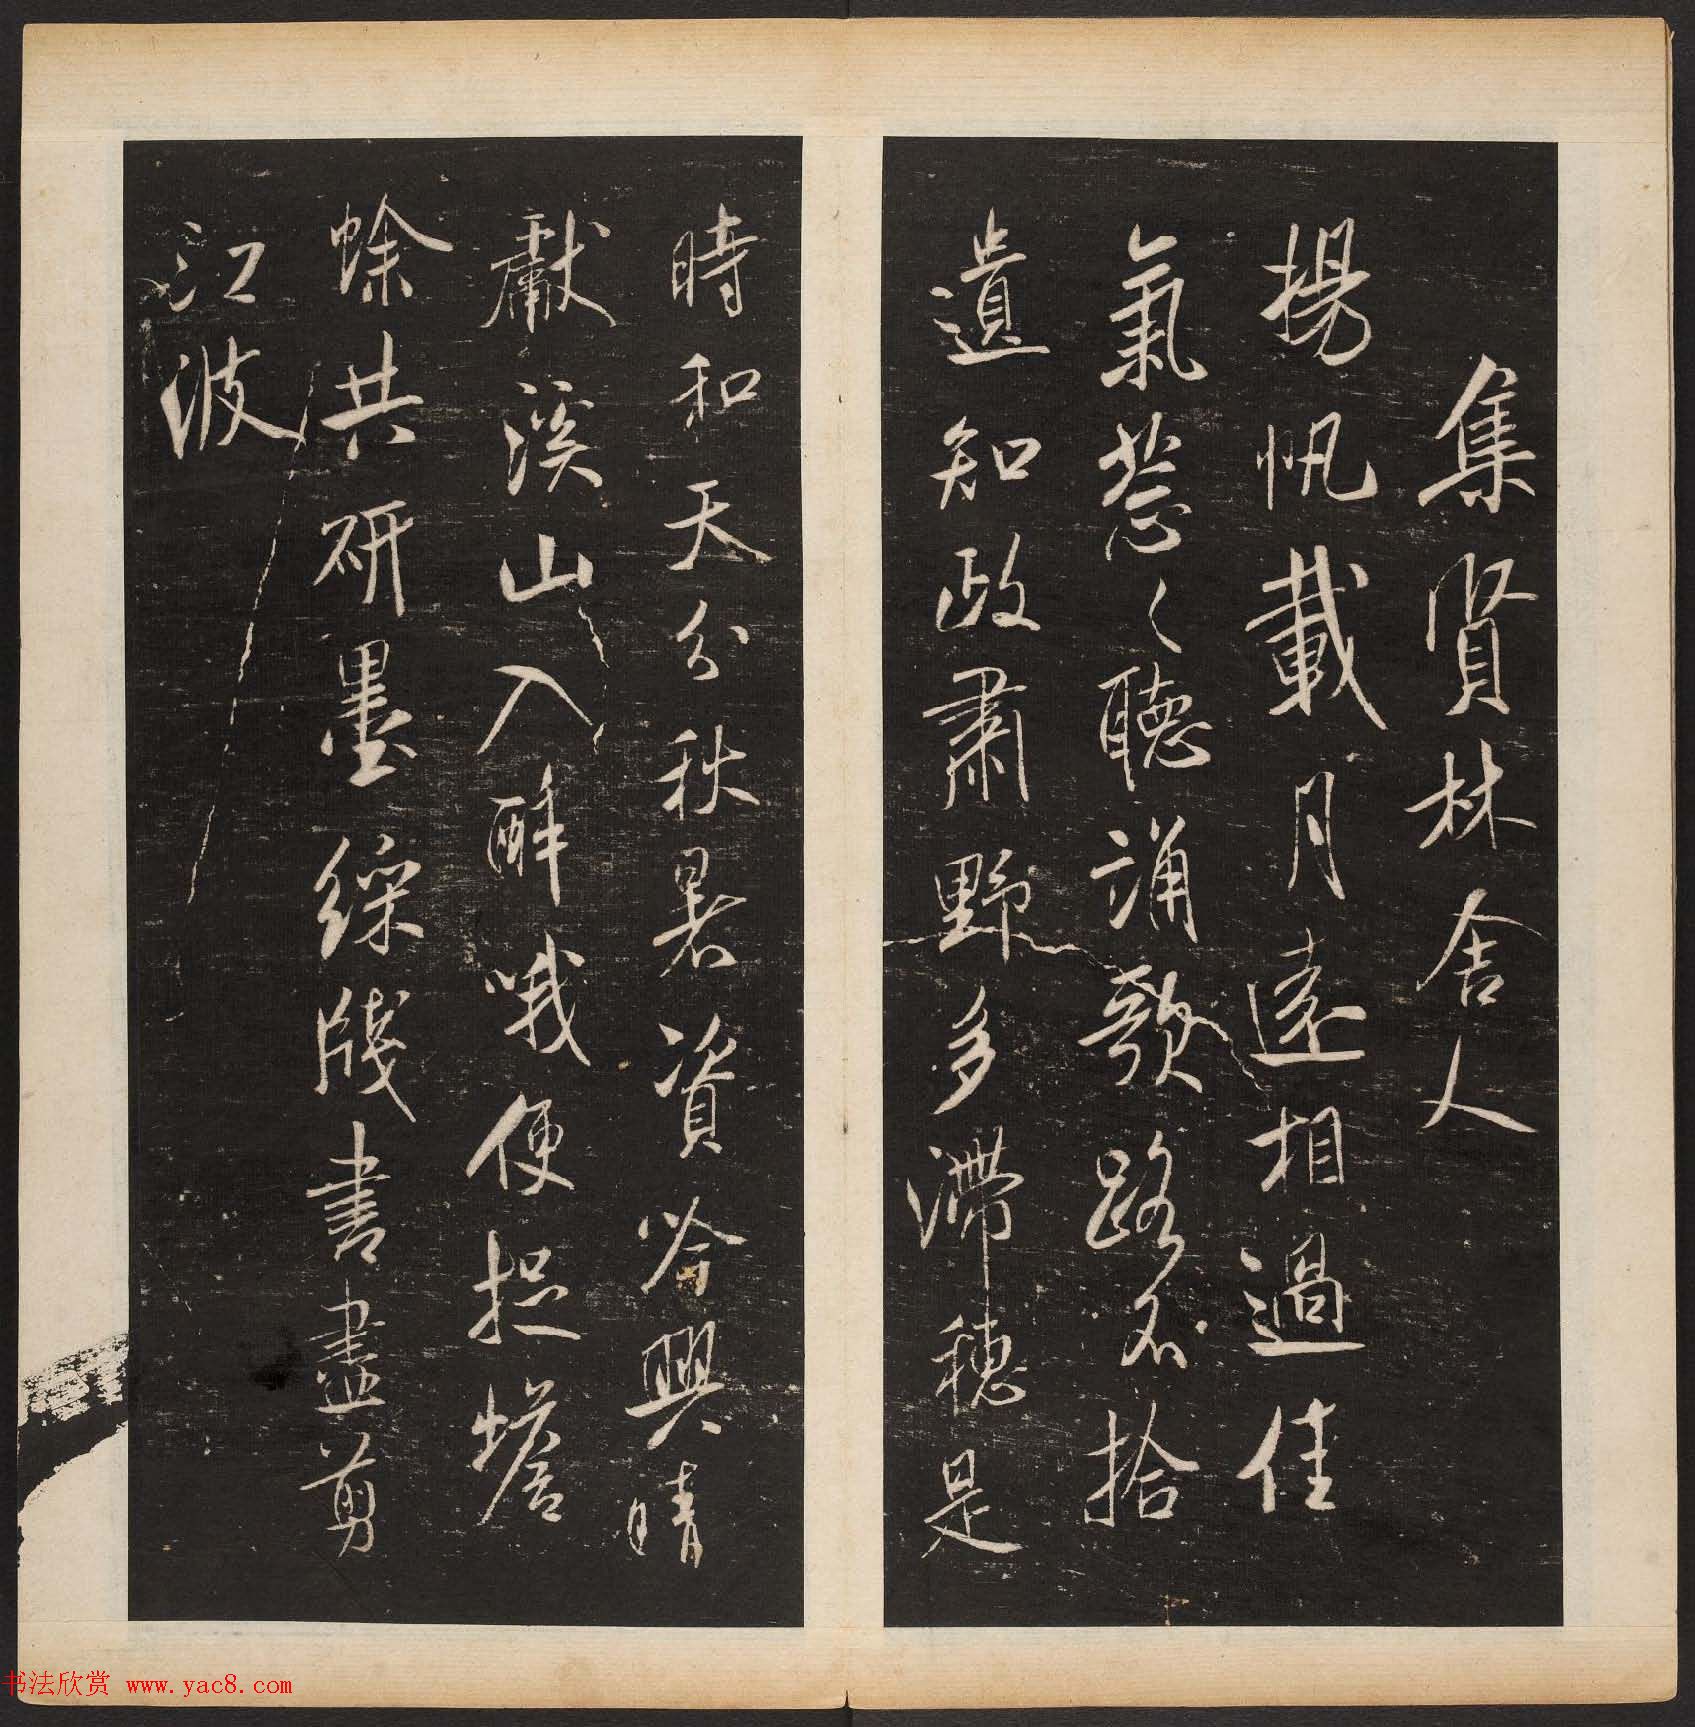 集賢林舍人
揚帆載月遠相過佳
氣葱〻聽誦歌路不拾
遺知政肅野多滯穗是
時和天分秋暑資吟興晴
獻溪山入醉哦便捉蟾
蜍共研墨綵牋書盡剪
江波
书法欣赏 www.yac8.com